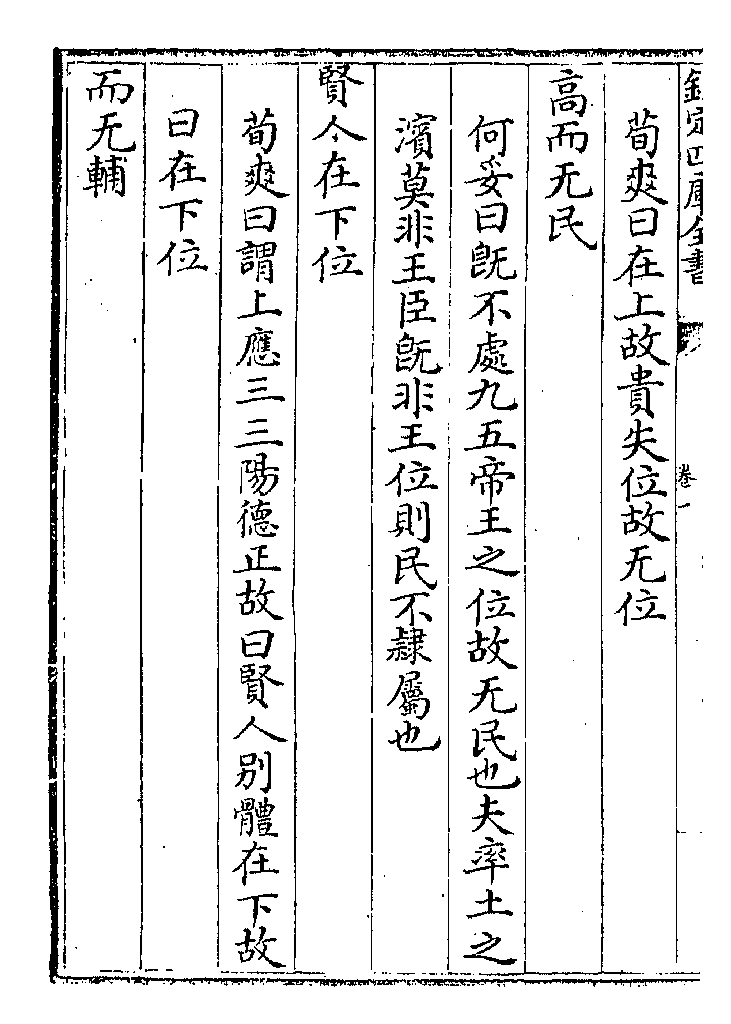 欽定四庫全書
卷一
荀爽曰在上故貴失位故无位
高而无民
何妥曰既不處九五帝王之位故无民也夫率土之
濱莫非王臣既非王位則民不隷屬也
賢人在下位
荀爽曰謂上應三三陽德正故曰賢人别體在下故
曰在下位
而无輔